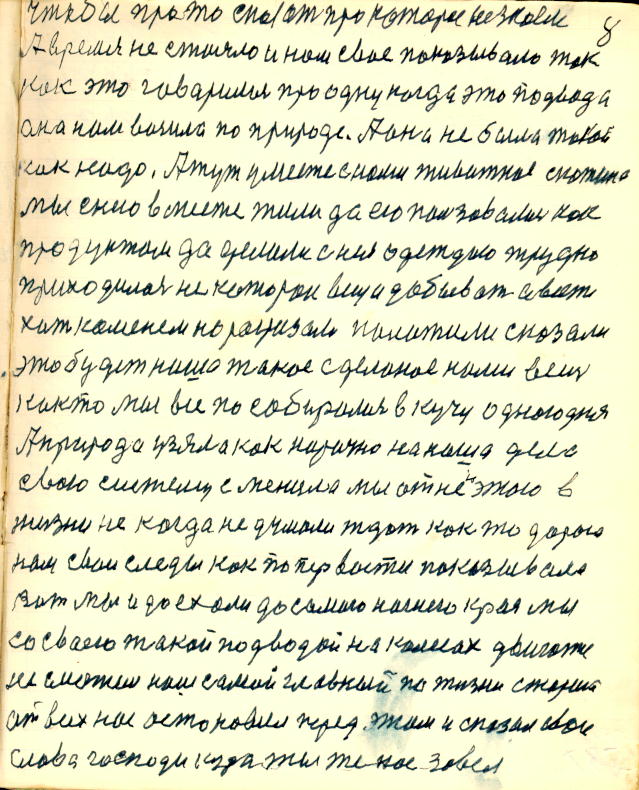 8
чтобы про это сказат про которое не знаем
А время не стояло и нам свае показывало так
как это гаварился про одну когда это подвода
она нам вазила по природе. А она не была такой
как надо. А тут уместе с нами животное скотина
мы с нею вместе жили да ею ползовалися как
продуктам да делали с нея одеждою трудно
приходилося не которои вещи добыват а вот
хат каменем нарацизали положили сказали
это будет наша такое сделоное нами вещ
как то мы все по собиралися в кучу одного дня
А природа узяла как нарочно на наша дело
свою систему сменила мы от неё этого в
жизни не когда не думали ждат как то дорога
нам свои следы как то первости показывала
Вот мы и доехали до самого нашего края мы
со сваею такой подводой на колесах двигатся
не смогли наш самой главный по жизни старший
от всех нас остоновил перед этам и сказал свои
слова господи куда ты же нас завел